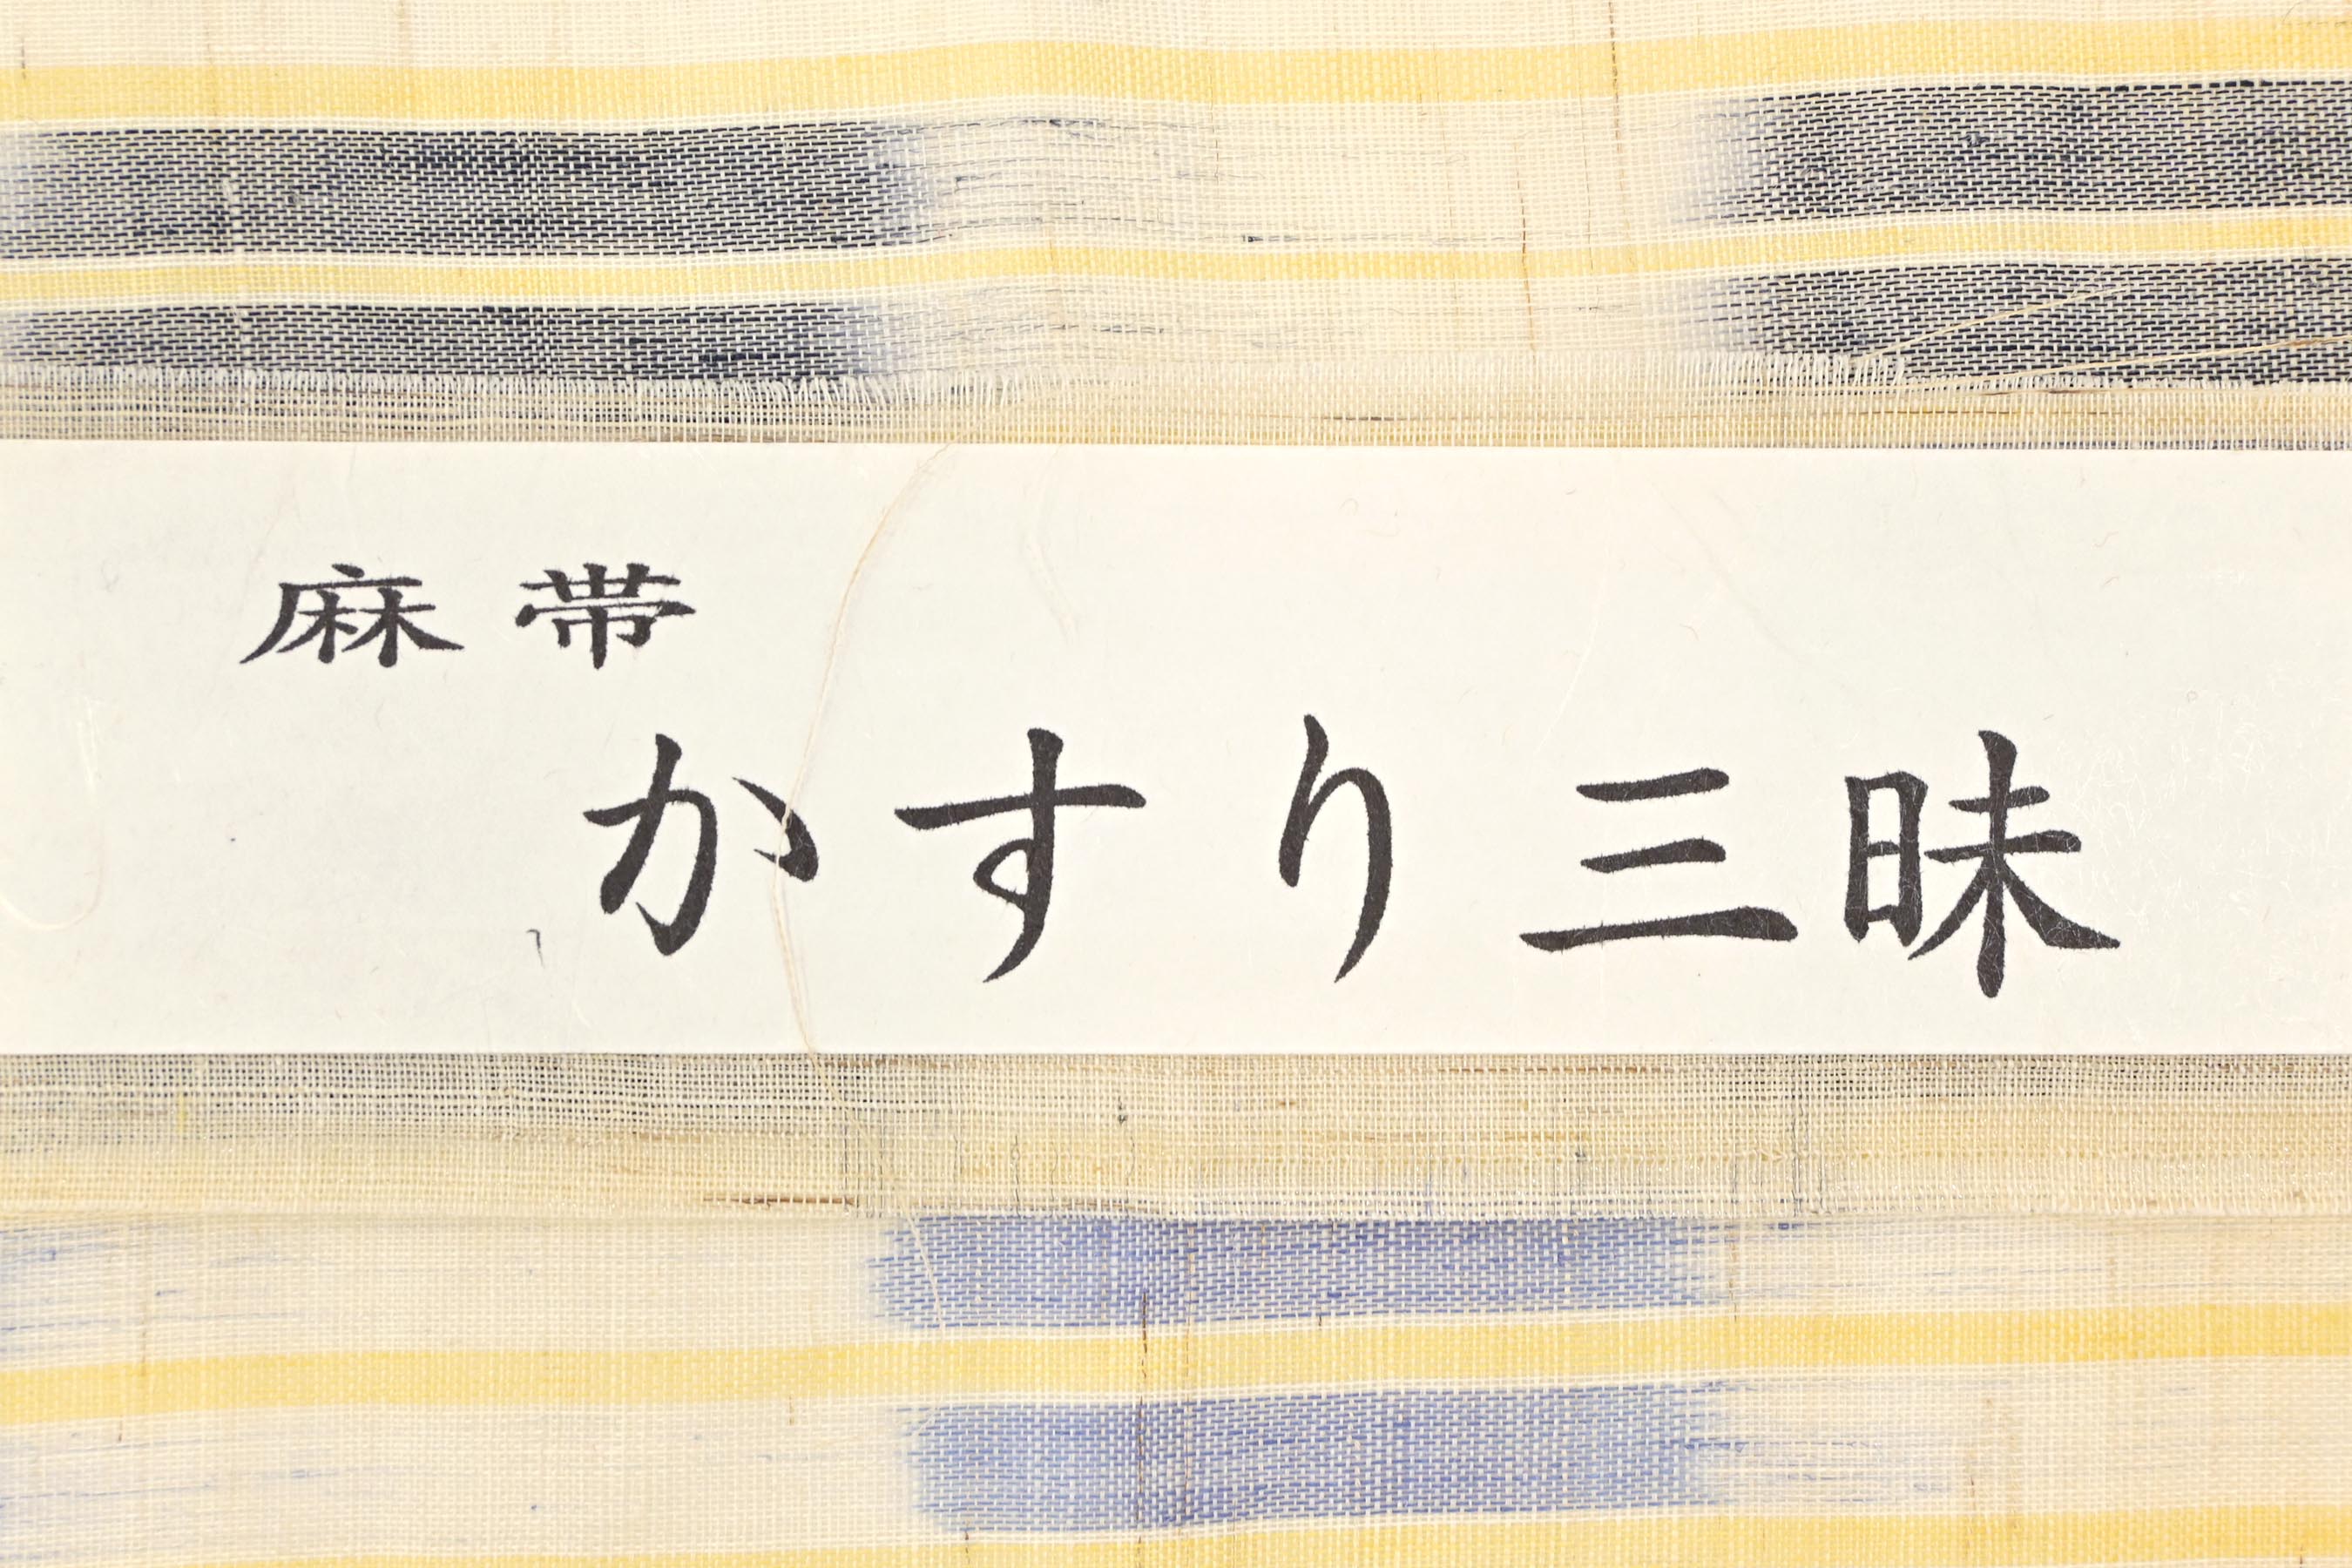 麻帯
かすり三昧